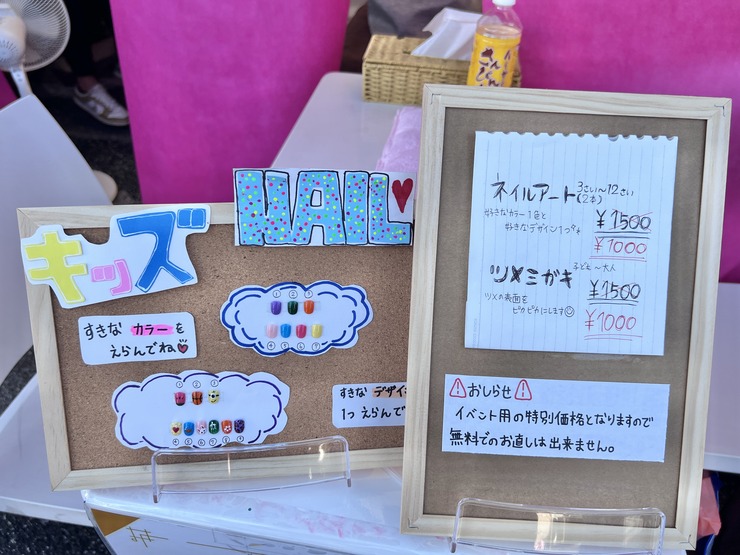 キッズ
NAIL
すきな カラー を
えらんでね
① ② ③
④ ⑤ ⑥ ⑦
① ② ③
④ ⑤ ⑥ ⑦ ⑧ ⑨
すきな デザイ
1つ えらんで
ネイルアート 3さい〜12さい
(2本)
好きなカラー1色と
好きなデザイン1つずつ
¥1500
¥1000
ツメミガキ 子ども〜大人
ツメの表面を
ピカピカにします
¥1500
¥1000
おしらせ
イベント用の特別価格となりますので
無料でのお直しは出来ません。